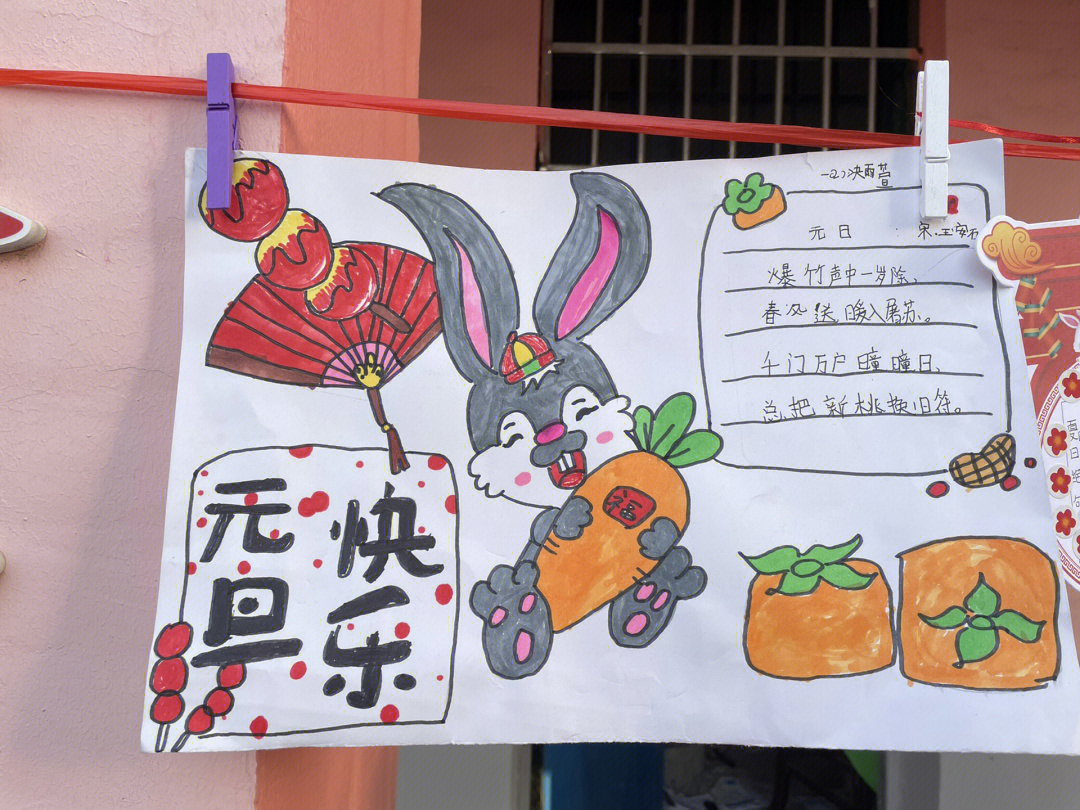 元旦
快乐
福
元日
宋.王安石
爆竹声中一岁除、
春风送暖入屠苏。
千门万户瞳瞳日、
总把新桃换旧符。
夏
日
绝
句